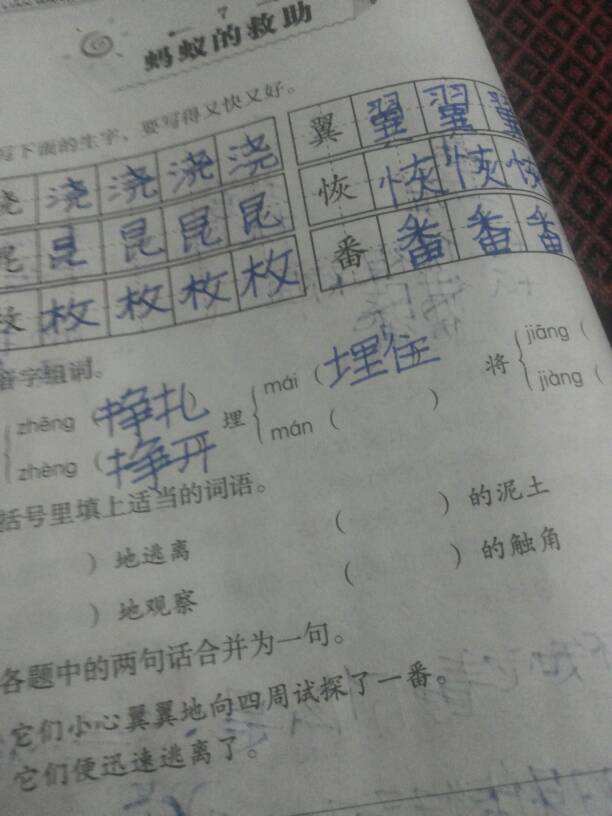 7
蚂蚁的救助
写下面的生字,要写得又快又好。
浇 浇 浇 浇 浇 翼 翼 翼 翼
昆 昆 昆 昆 昆 恢 恢 恢 恢
枚 枚 枚 枚 枚 番 番 番 番
音字组词。
zhēng (挣扎 埋 mái (埋住 将 jiāng (
zhèng (挣开 mán ( ) jiàng (
括号里填上适当的词语。
)地逃离 ( )的泥土
)地观察 ( )的触角
各题中的两句话合并为一句。
它们小心翼翼地向四周试探了一番。
它们便迅速逃离了。